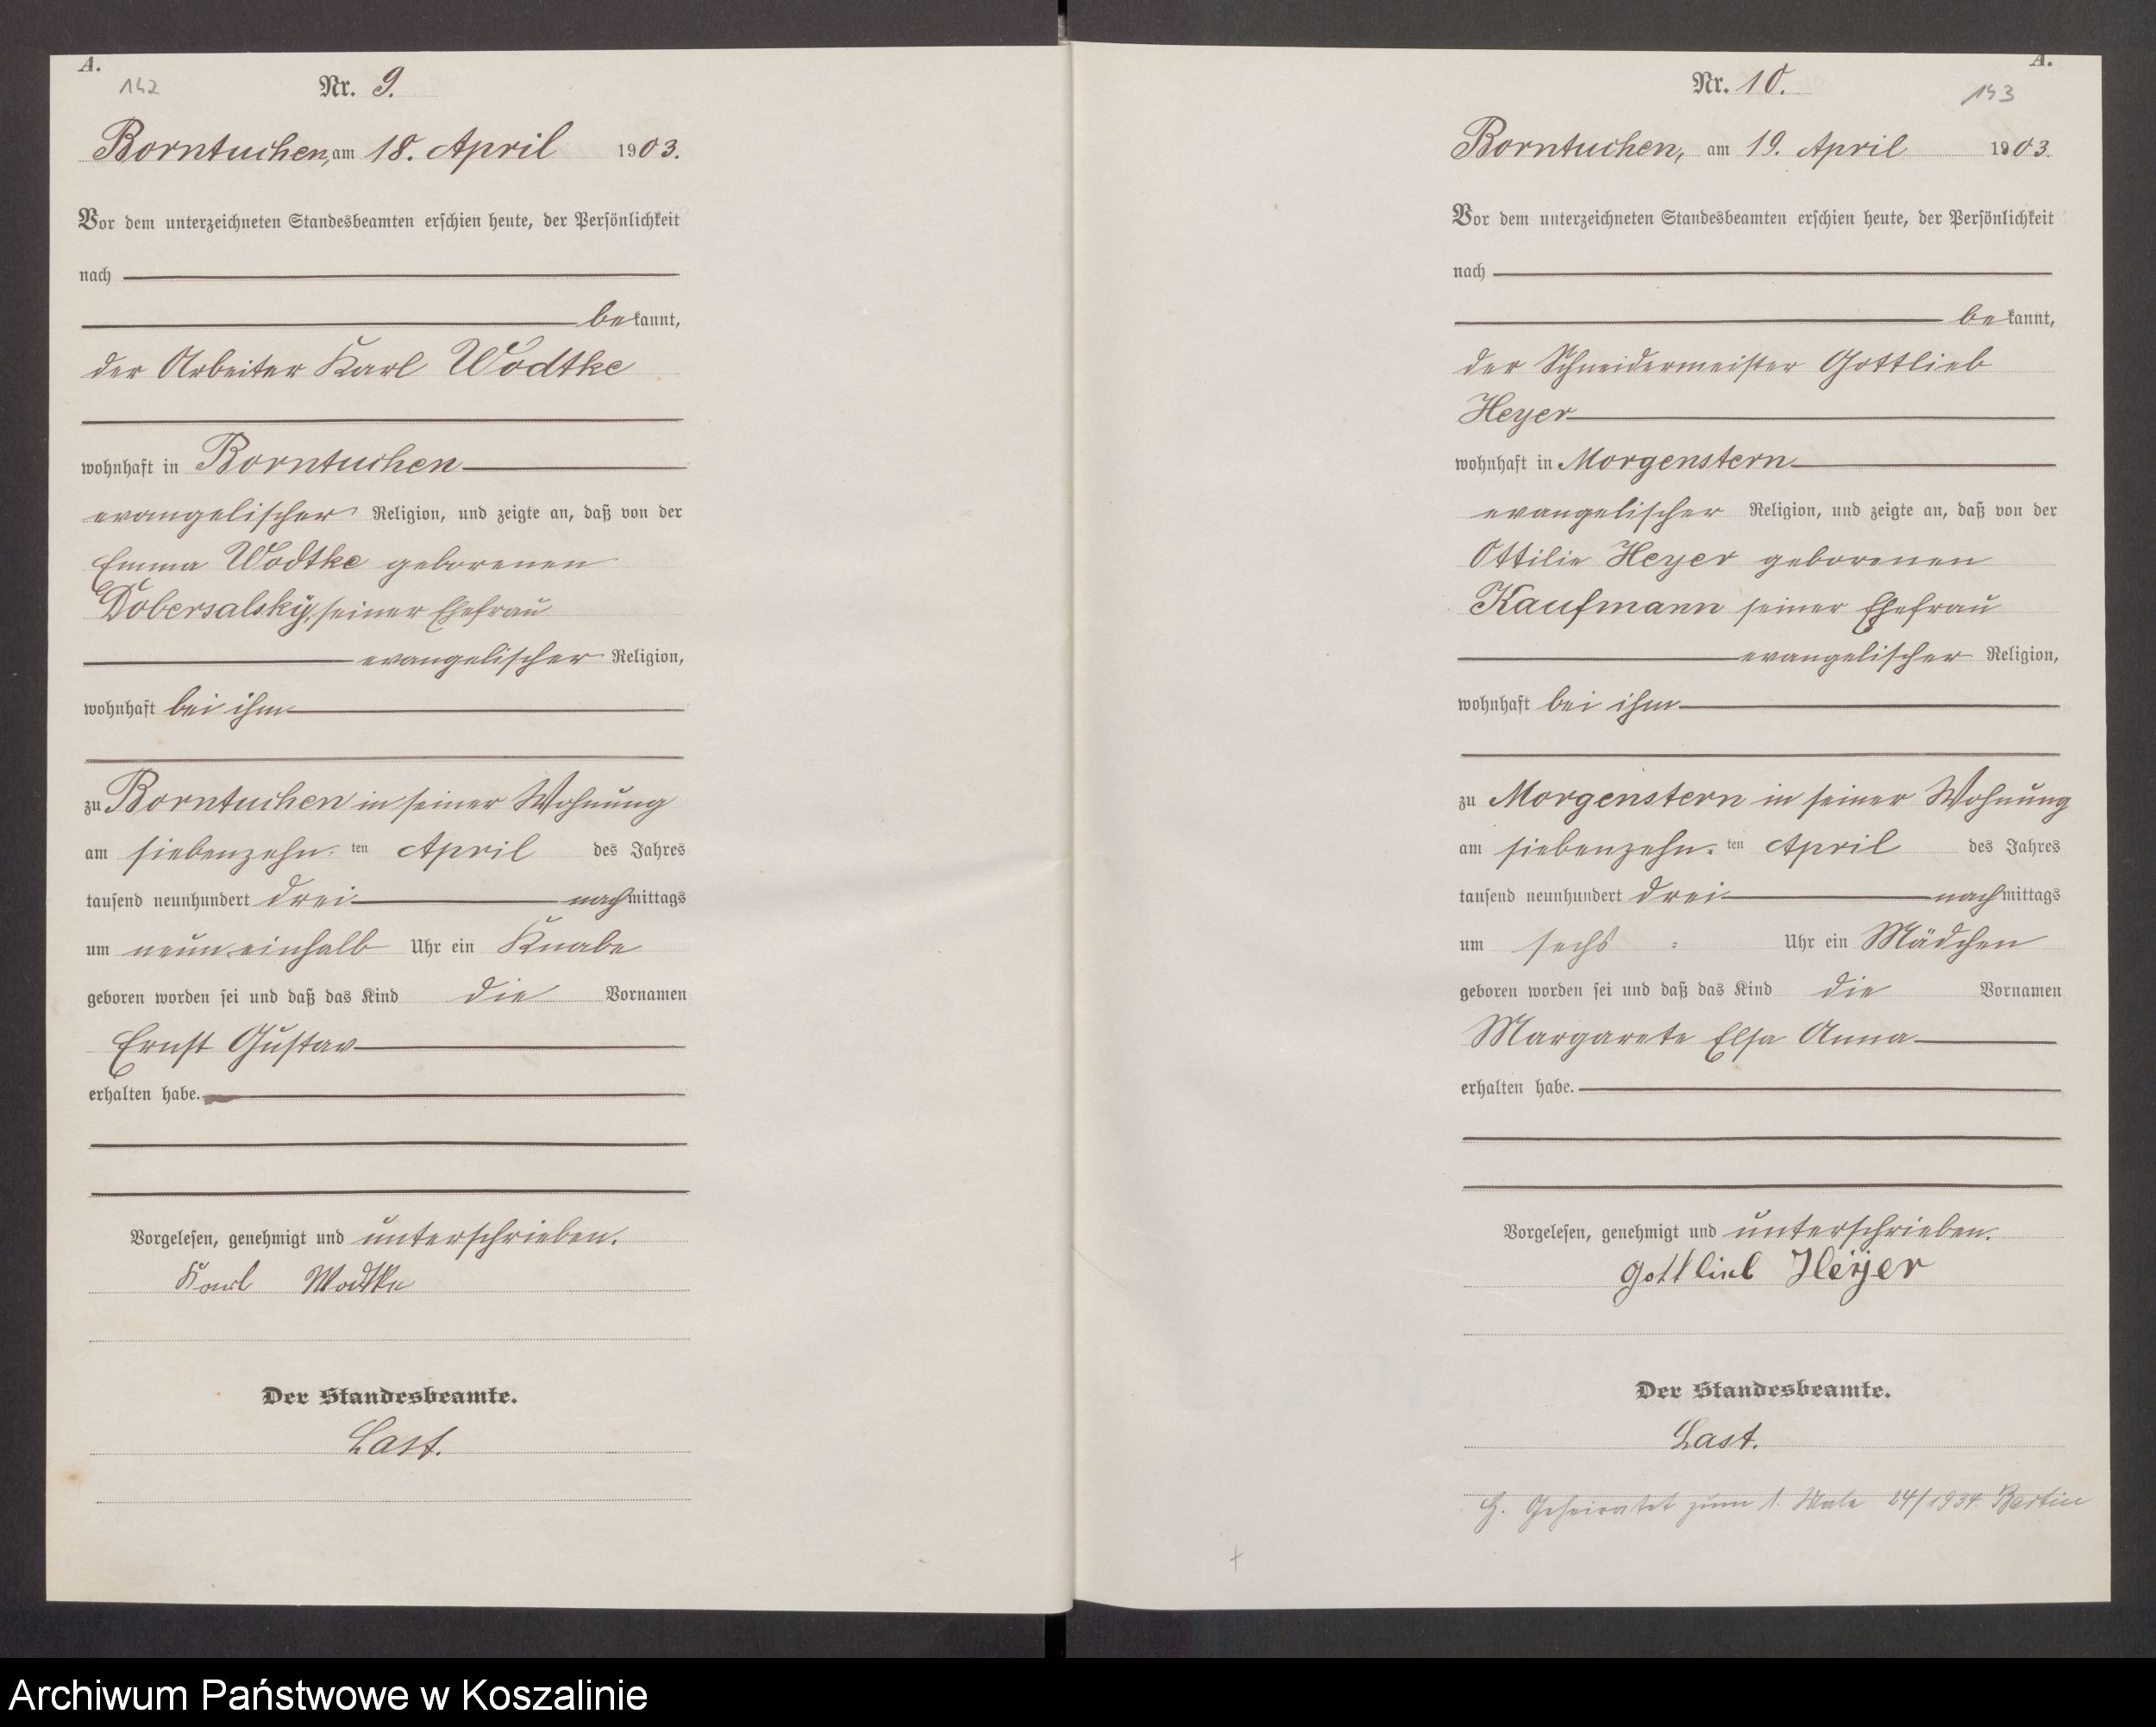 A.
142
Nr. 9.
Borntuchen, am 18. April 1903.
Vor dem unterzeichneten Standesbeamten erschien heute, der Persönlichkeit
nach
bekannt,
der Arbeiter Karl Wodtke
wohnhaft in Borntuchen
evangelischer Religion, und zeigte an, daß von der
Emma Wodtke geborenen
Dobersalsky, seiner Ehefrau
evangelischer Religion,
wohnhaft bei ihm
zu Borntuchen in seiner Wohnung
am siebenzehn- ten April des Jahres
tausend neunhundert drei nachmittags
um neun einhalb Uhr ein Knabe
geboren worden sei und daß das Kind die Vornamen
Ernst Gustav
erhalten habe.
Vorgelesen, genehmigt und unterschrieben.
Karl Wodtke
Der Standesbeamte.
Last.
A.
143
Nr. 10.
Borntuchen, am 19. April 1903.
Vor dem unterzeichneten Standesbeamten erschien heute, der Persönlichkeit
nach
bekannt,
der Schneidermeister Gottlieb
Heyer
wohnhaft in Morgenstern
evangelischer Religion, und zeigte an, daß von der
Ottilie Heyer geborenen
Kaufmann seiner Ehefrau
evangelischer Religion,
wohnhaft bei ihm
zu Morgenstern in seiner Wohnung
am siebenzehn- ten April des Jahres
tausend neunhundert drei nachmittags
um sechs Uhr ein Mädchen
geboren worden sei und daß das Kind die Vornamen
Margarete Elsa Anna
erhalten habe.
Vorgelesen, genehmigt und unterschrieben.
Gottlieb Heÿer
Der Standesbeamte.
Last.
Geheiratet zum 1. Male 24/1934
Archiwum Państwowe w Koszalinie